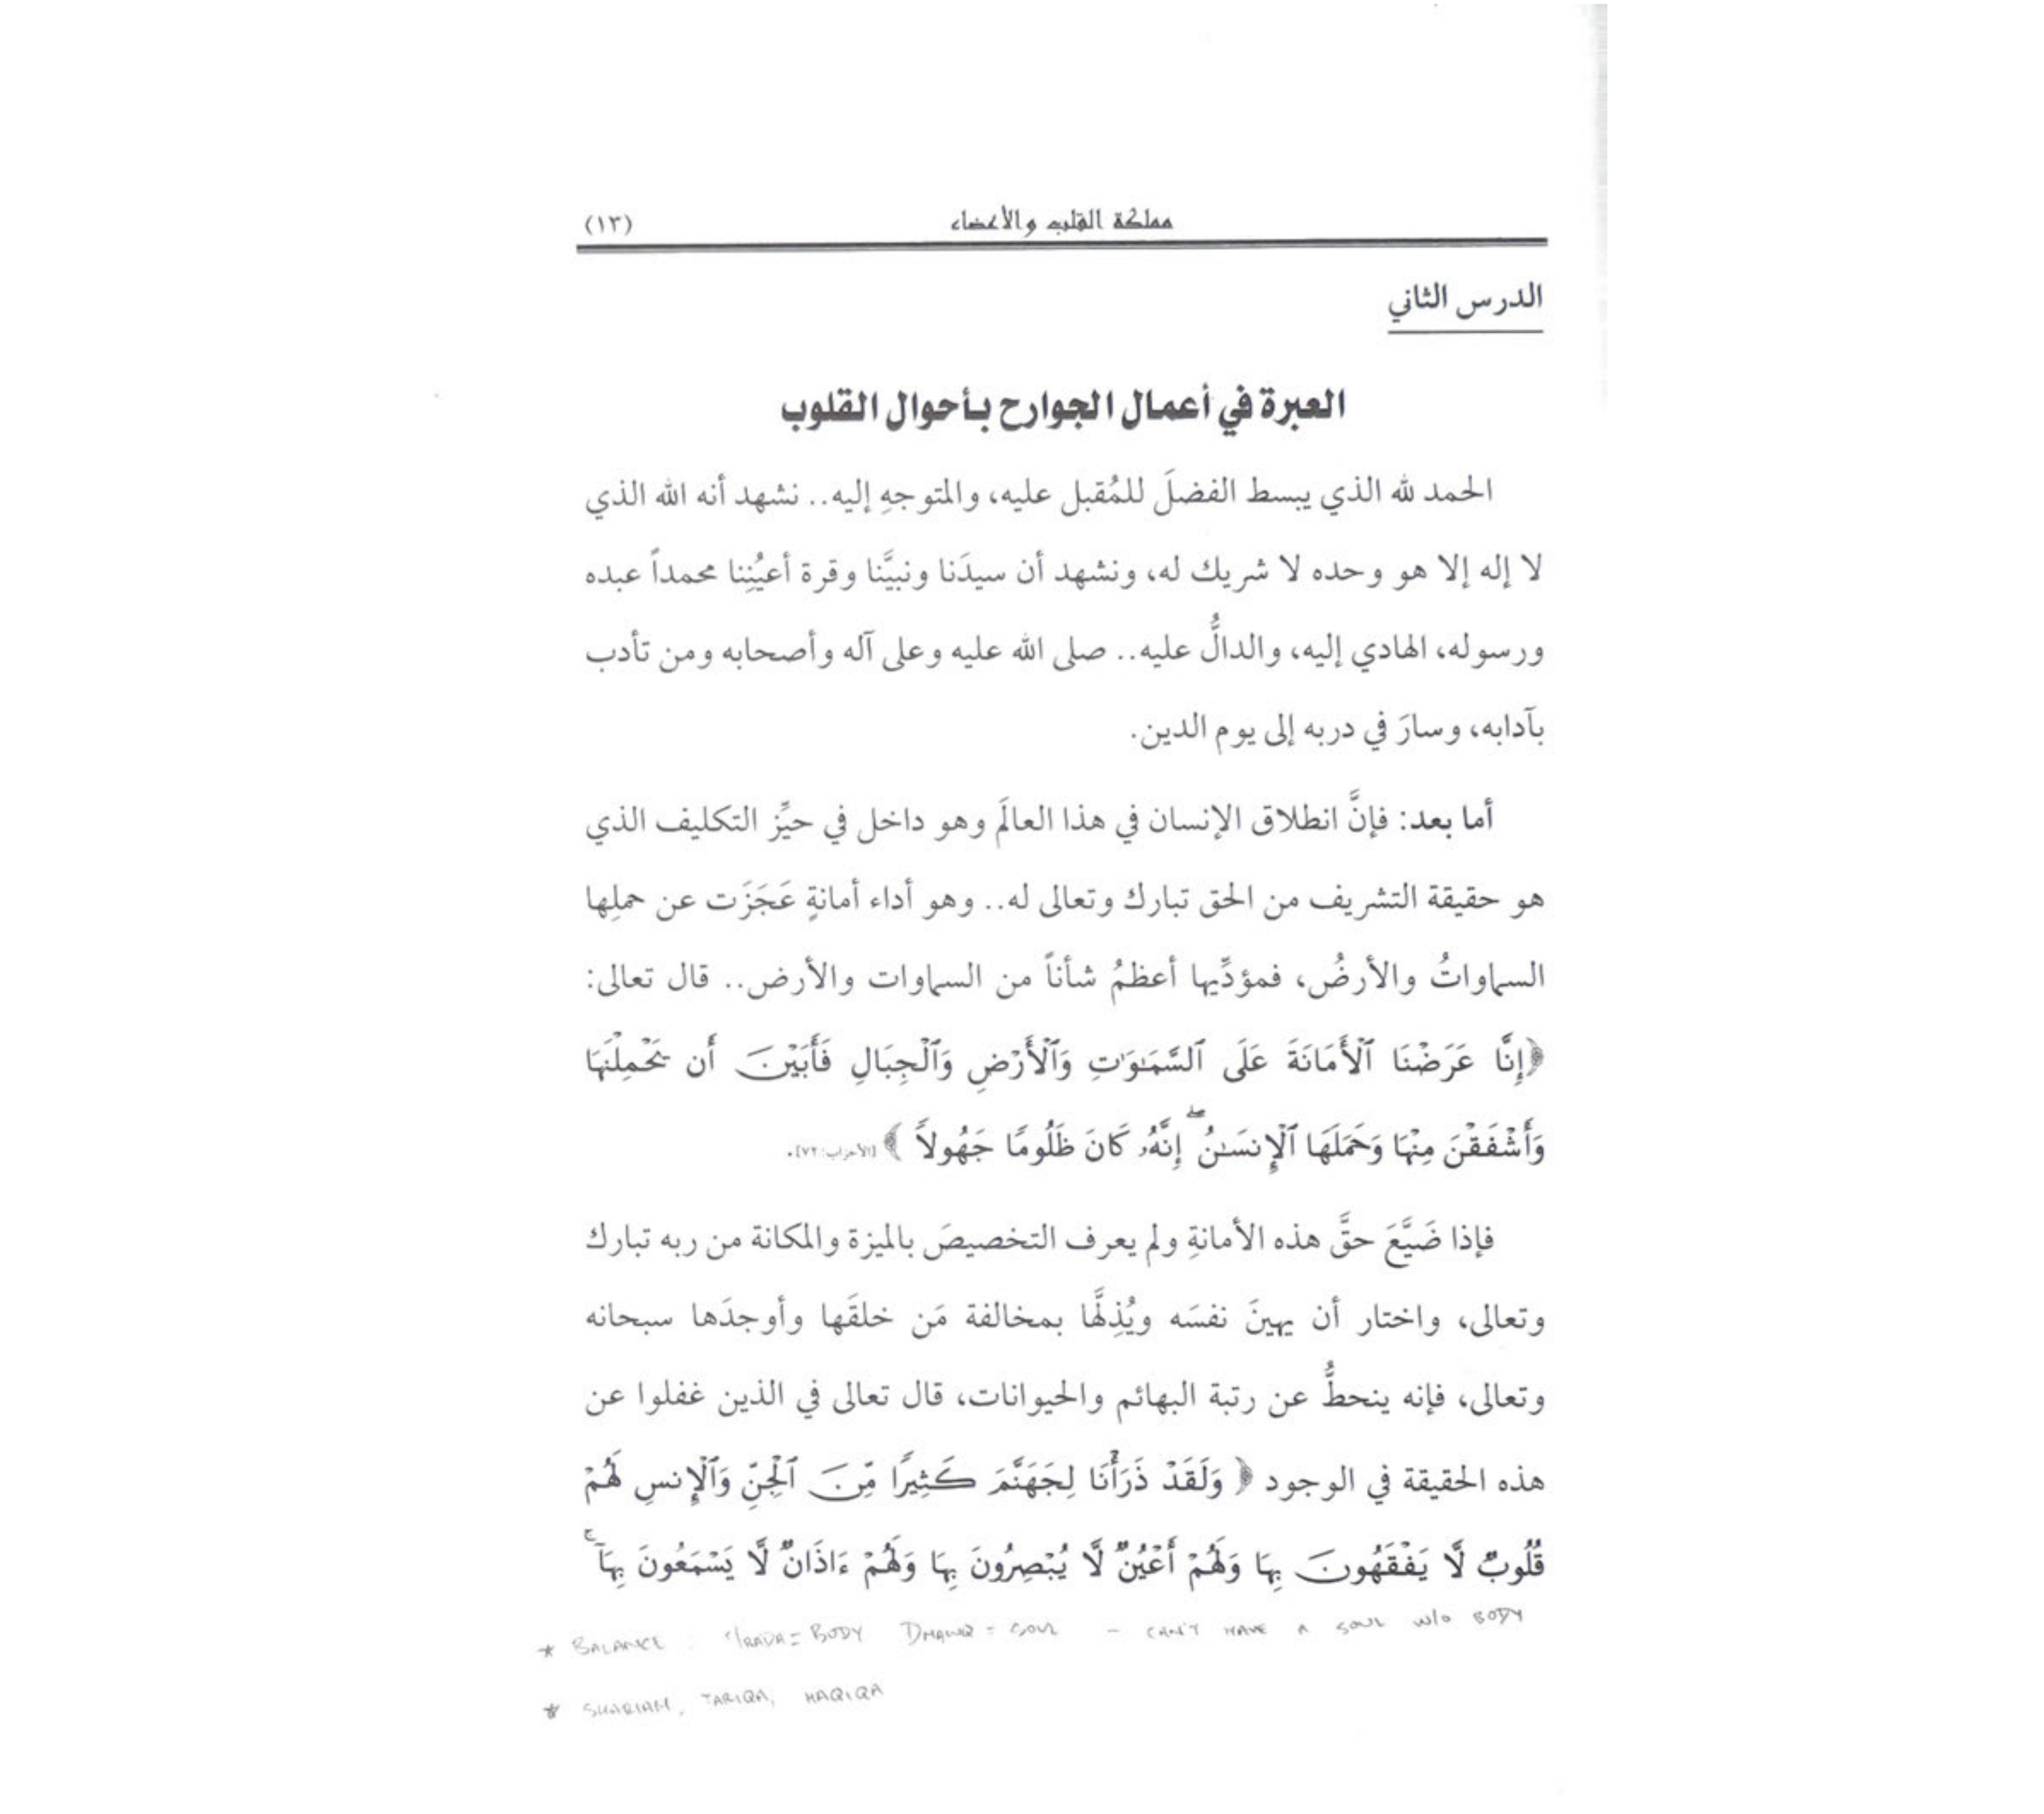 مملكة القلب والأعضاء (١٣)
الدرس الثاني
العبرة في أعمال الجوارح بأحوال القلوب
الحمد لله الذي يبسط الفضلَ للمُقبل عليه، والمتوجهِ إليه.. نشهد أنه الله الذي
لا إله إلا هو وحده لا شريك له، ونشهد أن سيدَنا ونبيَّنا وقرة أعيُنِنا محمداً عبده
ورسوله، الهادي إليه، والدالُّ عليه.. صلى الله عليه وعلى آله وأصحابه ومن تأدب
بآدابه، وسارَ في دربه إلى يوم الدين.
أما بعد: فإنَّ انطلاق الإنسان في هذا العالَم وهو داخل في حيِّز التكليف الذي
هو حقيقة التشريف من الحق تبارك وتعالى له.. وهو أداء أمانةٍ عَجَزَت عن حملِها
السماواتُ والأرضُ، فمؤدِّيها أعظمُ شأناً من السماوات والأرض.. قال تعالى:
﴿إِنَّا عَرَضْنَا ٱلْأَمَانَةَ عَلَى ٱلسَّمَـٰوَٰتِ وَٱلْأَرْضِ وَٱلْجِبَالِ فَأَبَيْنَ أَن يَحْمِلْنَهَا
وَأَشْفَقْنَ مِنْهَا وَحَمَلَهَا ٱلْإِنسَـٰنُ ۖ إِنَّهُۥ كَانَ ظَلُومًا جَهُولاً ﴾ [الأحزاب:٧٢].
فإذا ضَيَّعَ حقَّ هذه الأمانةِ ولم يعرف التخصيصَ بالميزة والمكانة من ربه تبارك
وتعالى، واختار أن يهينَ نفسَه ويُذِلَّها بمخالفة مَن خلقَها وأوجدَها سبحانه
وتعالى، فإنه ينحطُّ عن رتبة البهائم والحيوانات، قال تعالى في الذين غفلوا عن
هذه الحقيقة في الوجود ﴿ وَلَقَدْ ذَرَأْنَا لِجَهَنَّمَ كَثِيرًا مِّنَ ٱلْجِنِّ وَٱلْإِنسِ لَهُمْ
قُلُوبٌ لَّا يَفْقَهُونَ بِهَا وَلَهُمْ أَعْيُنٌ لَّا يُبْصِرُونَ بِهَا وَلَهُمْ ءَاذَانٌ لَّا يَسْمَعُونَ بِهَآ ۚ
* BALANCE : = BODY = SOUL - CAN'T HAVE A SOUL W/O BODY
* SHARIAH, TARIQA, HAQIQA